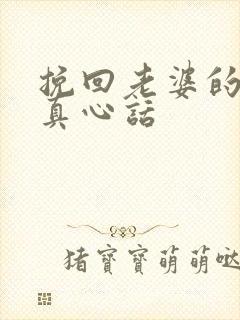 挽回老婆的
真心話
猪寶寶萌萌哒